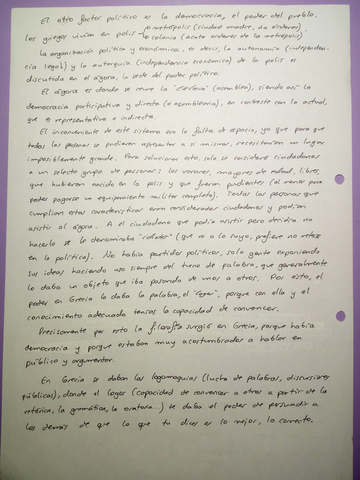 El otro factor político es la democracia, el poder del pueblo.
Los griegos vivían en polis → metrópolis (ciudad madre, da órdenes)
→ colonia (acata órdenes de la metrópolis)
La organización política y económica, es decir, la autonomía (independen-
cia legal) y la autarquía (independencia económica) de la polis es
discutida en el ágora, la sede del poder político.
El ágora es donde se reune la "ekklesia" (asamblea), siendo así la
democracia participativa y directa (o asamblearia), en contraste con la actual,
que es representativa e indirecta.
El inconveniente de este sistema era la falta de espacio, ya que para que
todas las personas se pudieran representar a sí mismas, necesitarían un lugar
imposiblemente grande. Para solucionar esto, solo se considera ciudadanos
a un selecto grupo de personas: los varones, mayores de edad, libres,
que hubieran nacido en la polis y que fueran pudientes (al menos para
poder pagarse un equipamiento militar completo). Todas las personas que
cumplían estas características eran consideradas ciudadanos y podían
asistir al ágora. A el ciudadano que podía asistir pero decidía no
hacerlo se le denominaba "idiotés" (que va a lo suyo, prefiere no meterse
en la política). No había partidos políticos, solo gente exponiendo
sus ideas haciendo uso siempre del turno de palabra, que generalmente
lo daba un objeto que iba pasando de unos a otros. Por esto, el
poder en Grecia lo daba la palabra, el "logos", porque con ella y el
conocimiento adecuado tenías la capacidad de convencer.
Precisamente por esto la filosofía surgió en Grecia, porque había
democracia y porque estaban muy acostumbrados a hablar en
público y argumentar.
En Grecia se daban las logomaquias (lucha de palabras, discusiones
públicas), donde el logos (capacidad de convencer a otros a partir de la
retórica, la gramática, la oratoria...) te daba el poder de persuadir a
los demás de que lo que tú dices es lo mejor, lo correcto.